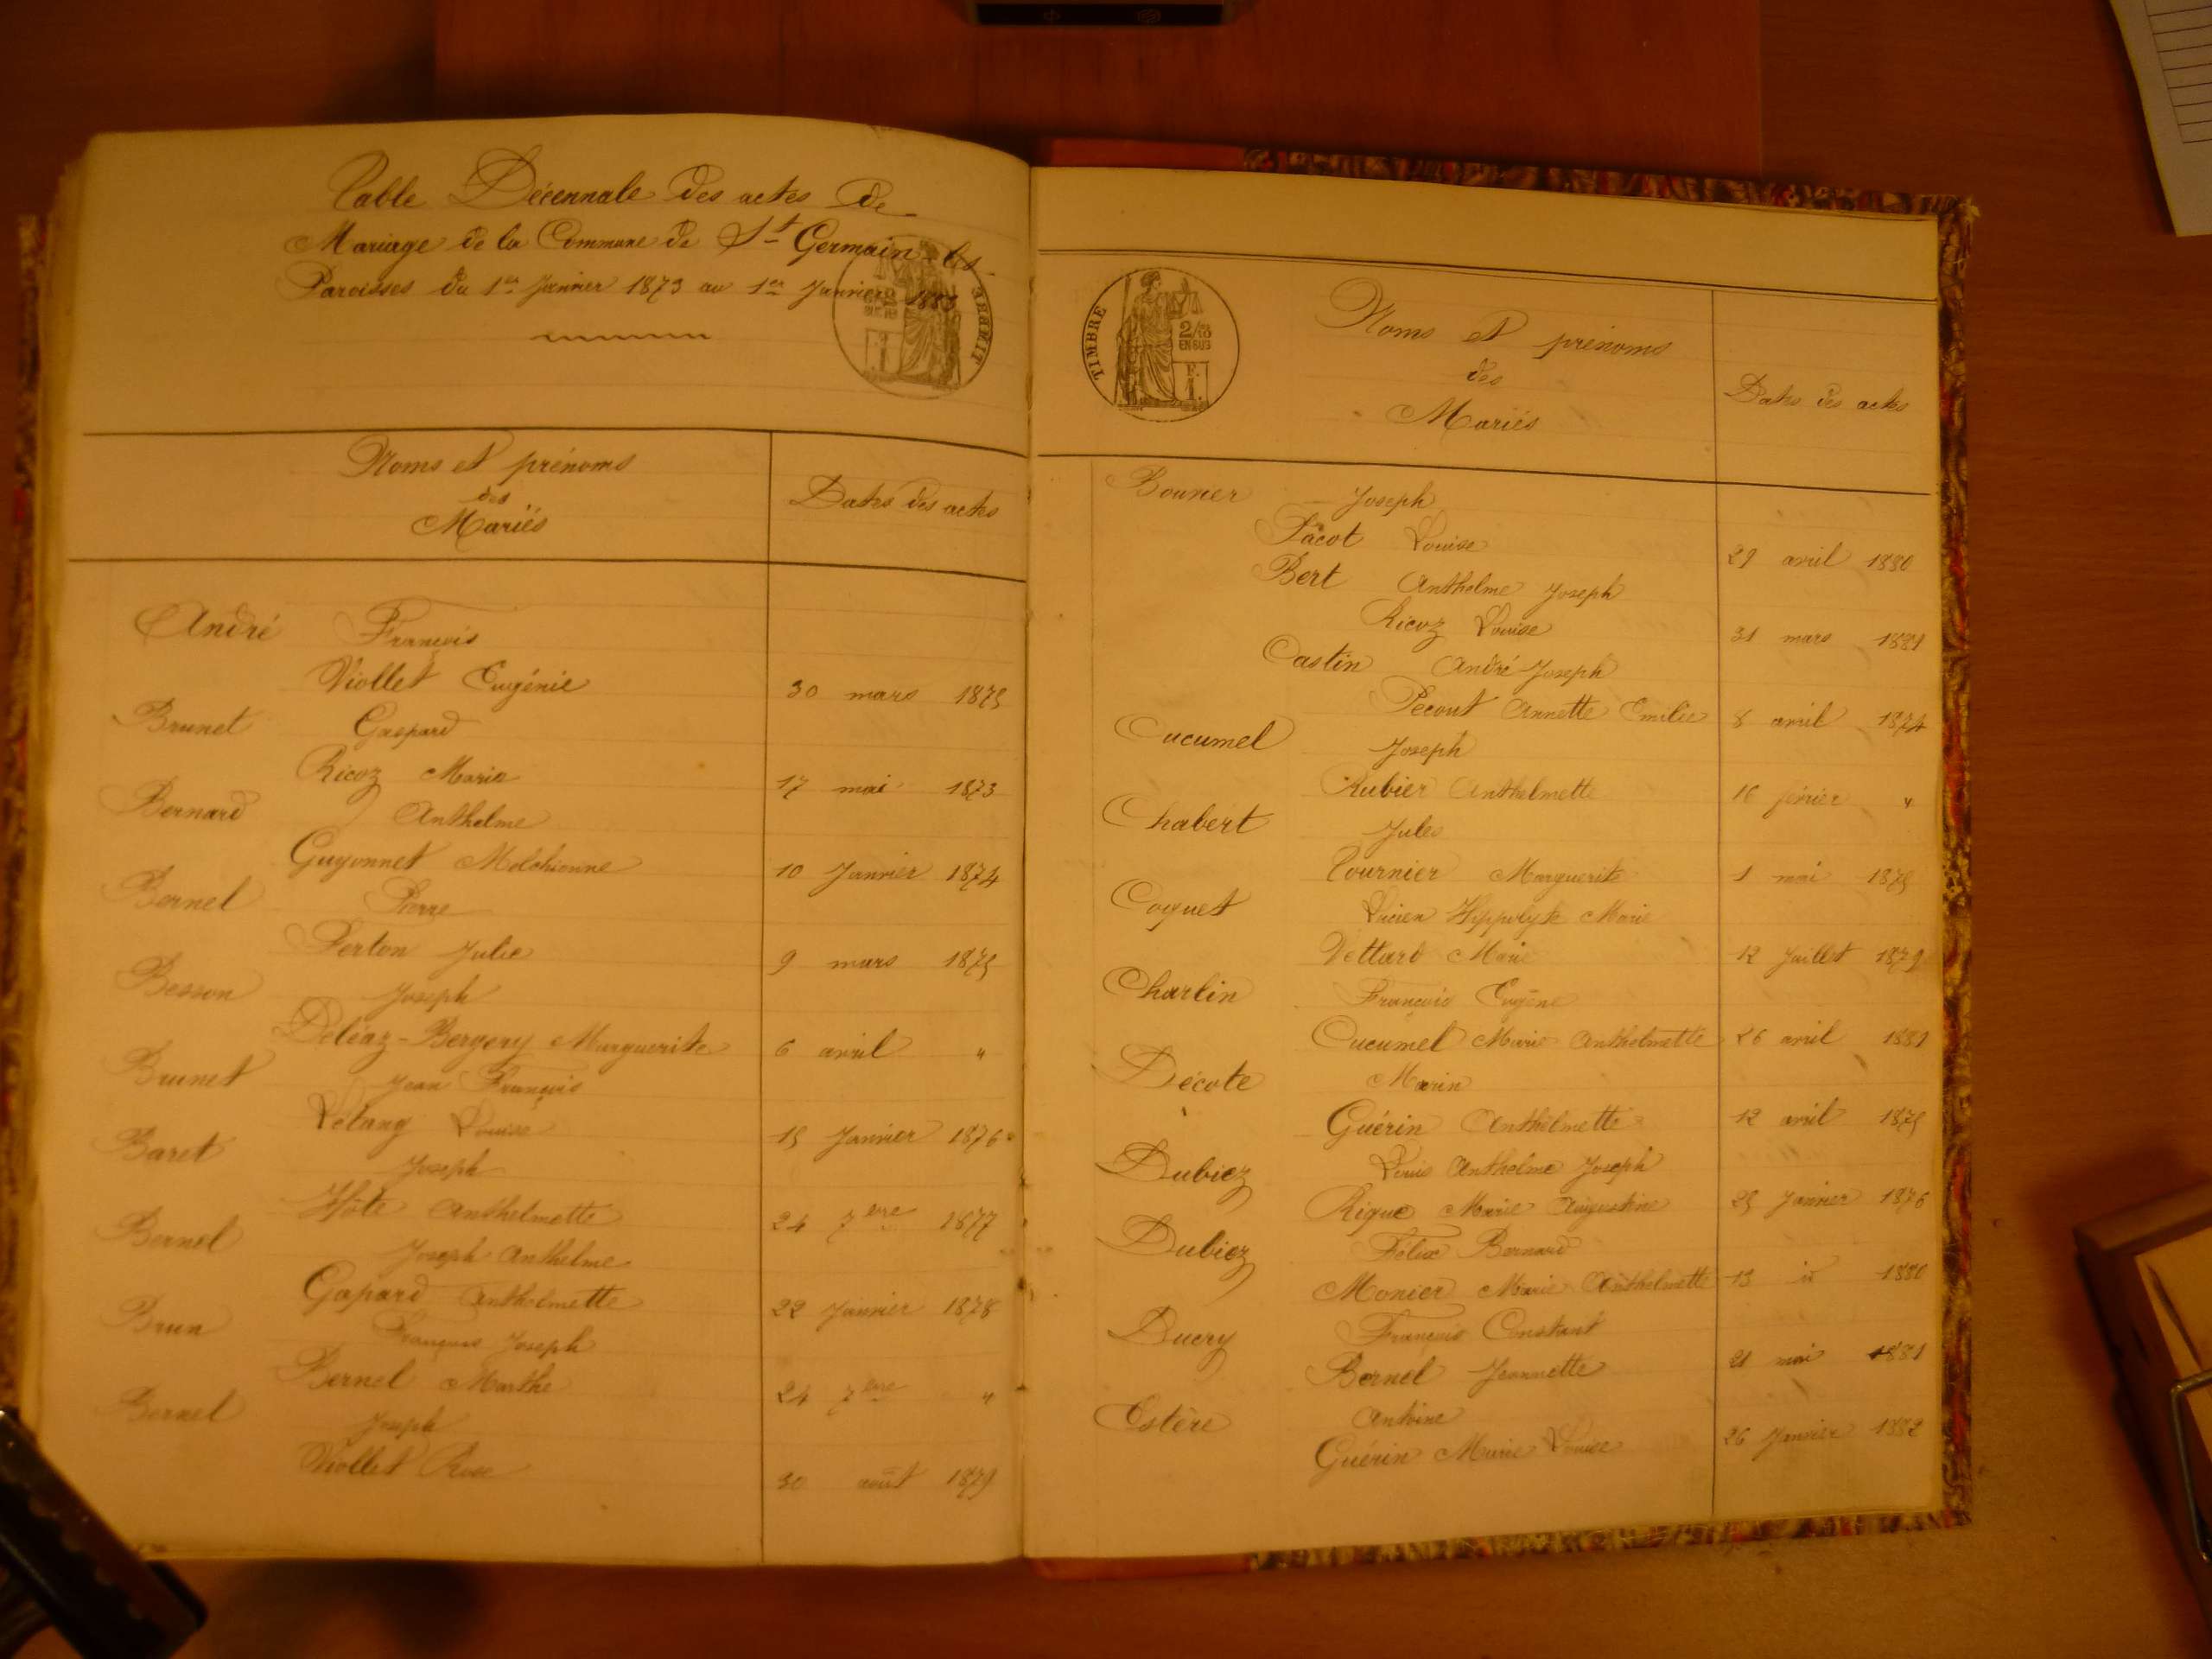 Table Décennale des actes de
Mariage de la Commune de St Germain les
Paroisses du 1er Janvier 1873 au 1er Janvier 1883
TIMBRE
Noms et prénoms
des
Mariés
Dates des actes
André François
Viollet Eugénie 30 mars 1875
Brunet Gaspard
Ricoz Marie 17 mai 1873
Bernard Anthelme
Guyonnet Melchionne 10 Janvier 1874
Bernel Pierre
Perton Julie 9 mars 1875
Besson Joseph
Peléaz-Bergery Marguerite 6 avril "
Brunet Jean François
Létang Louise 15 Janvier 1876
Baret Joseph
Hôte Anthelmette 24 7bre 1877
Bernel Joseph Anthelme
Gapard Anthelmette 22 Janvier 1878
Brun François Joseph
Bernel Marthe 24 7bre "
Bernel Joseph
Viollet Rose 30 août 1879
TIMBRE
2/10
EN SUS
F.
1.
Noms et prénoms
des
Mariés
Dates des actes
Bouvier Joseph
Pacot Louise 29 avril 1880
Bert Anthelme Joseph
Ricoz Louise 31 mars 1881
Castin André Joseph
Pecout Annette Emilie 8 avril 1874
Cucumel Joseph
Rubier Anthelmette 16 février "
Chabert Jules
Tournier Marguerite 1 mai 1875
Coquet Lucien Hippolyte Marie
Vettard Marie 12 Juillet 1879
Charlin François Eugène
Cucumel Marie Anthelmette 26 avril 1881
Décote Marin
Guérin Anthelmette 12 avril 1875
Dubiez Louis Anthelme Joseph
Rique Marie Augustine 25 Janvier 1876
Dubiez Félix Bernard
Monier Marie Anthelmette 13 id 1880
Ducry François Constant
Bernel Jeannette 21 mai 1881
Estère Antoine
Guérin Marie Louise 26 Janvier 1882